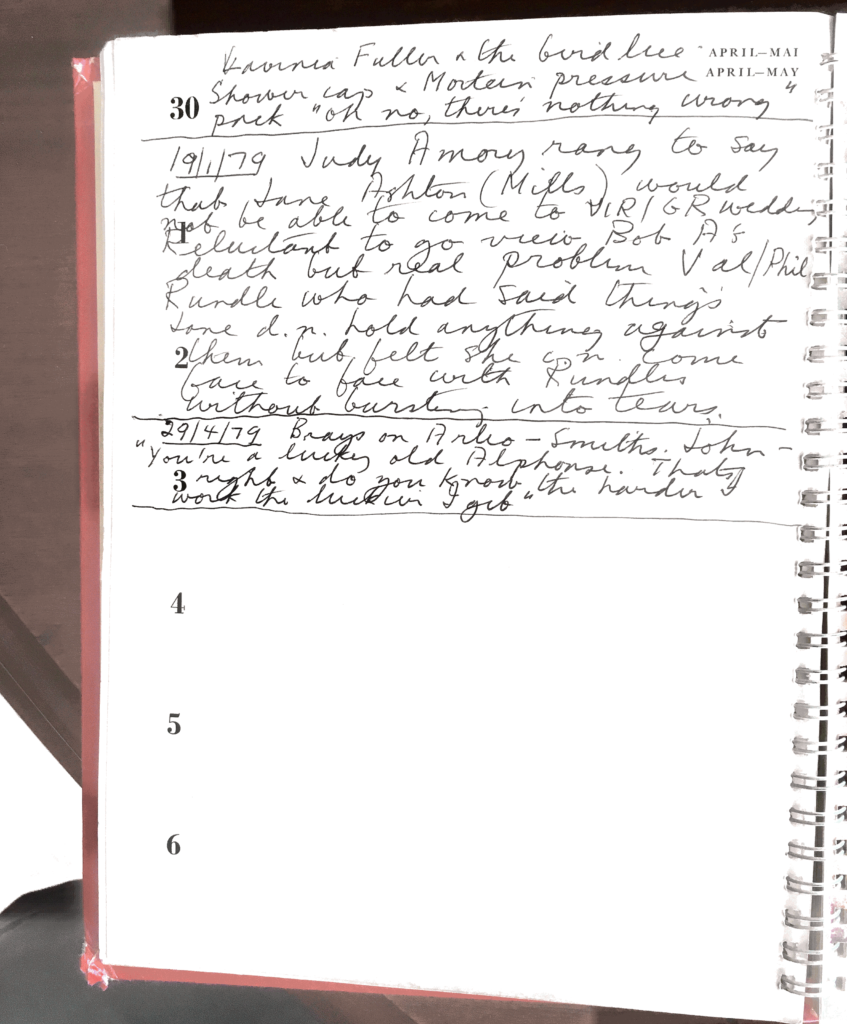 Lavinia Fuller & the bird lice APRIL–MAI
Shower cap & Mortein pressure APRIL–MAY
30 pack "oh no, there's nothing wrong"
19/1/79 Judy Amory rang to say
that Jane Ashton (Mills) would
not be able to come to VIR/GR wedding
1 Reluctant to go view Bob A's
death but real problem Val/Phil
Rundle who had said things
Jane d.n. hold anything against
2 them but felt she c.n. come
face to face with Rundles
without bursting into tears.
29/4/79 Brays on - Smiths. John -
"You're a lucky old Alphonse. Thats
3 right & do you know the harder I
work the luckier I get"
4
5
6